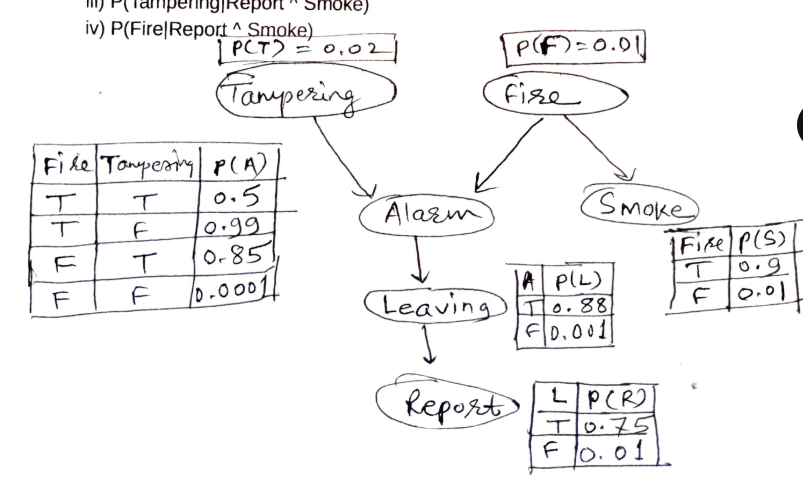 iii) P(Tampering|Report ^ Smoke)
iv) P(Fire|Report ^ Smoke)
P(T) = 0.02
P(F)=0.01
Tampering
Fire
Fire Tampering P(A)
T T 0.5
T F 0.99
F T 0.85
F F 0.0001
Alarm
Smoke
Fire P(S)
T 0.9
F 0.01
Leaving
A P(L)
T 0.88
F 0.001
Report
L P(R)
T 0.75
F 0.01